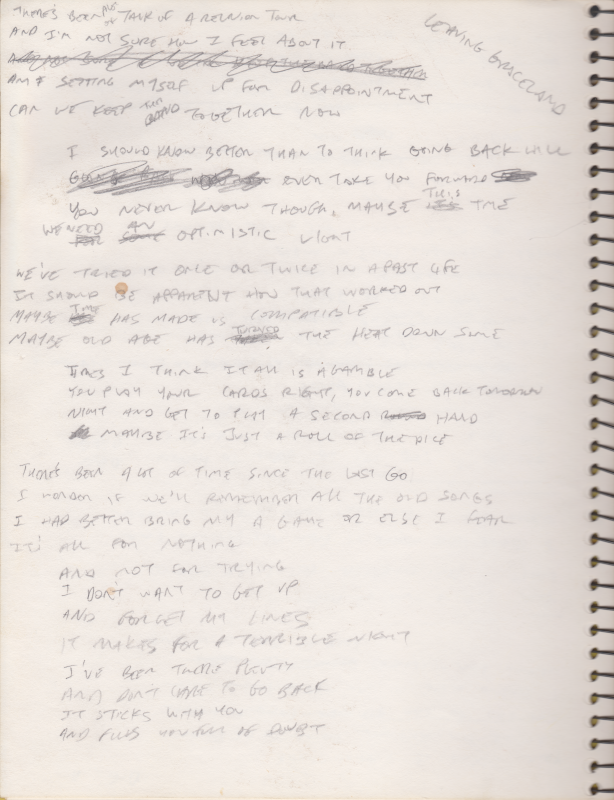 LEAVING GRACELAND
THERE'S BEEN TALK OF A REUNION TOUR
AND I'M NOT SURE HOW I FEEL ABOUT IT.
AM I SETTING MYSELF UP FOR DISAPPOINTMENT
CAN WE KEEP THE BAND TOGETHER NOW
I SHOULD KNOW BETTER THAN TO THINK GOING BACK WILL
EVER TAKE YOU FORWARD
YOU NEVER KNOW THOUGH, MAYBE THIS TIME
WE NEED AN OPTIMISTIC LIGHT
WE'VE TRIED IT ONCE OR TWICE IN A PAST LIFE
IT SHOULD BE APPARENT HOW THAT WORKED OUT
MAYBE TIME HAS MADE US COMPATIBLE
MAYBE OLD AGE HAS TURNED THE HEAT DOWN SOME
I THINK IT ALL IS A GAMBLE
YOU PLAY YOUR CARDS RIGHT, YOU COME BACK TOMORROW
NIGHT AND GET TO PLAY A SECOND HAND
MAYBE IT'S JUST A ROLL OF THE DICE
THERE'S BEEN A LOT OF TIME SINCE THE LAST GO
I WONDER IF WE'LL REMEMBER ALL THE OLD SONGS
I HAD BETTER BRING MY A GAME OR ELSE I FEAR
IT'S ALL FOR NOTHING
AND NOT FOR TRYING
I DON'T WANT TO GET UP
AND FORGET MY LINES
IT MAKES FOR A TERRIBLE NIGHT
I'VE BEEN THERE PLENTY
AND DON'T CARE TO GO BACK
IT STICKS WITH YOU
AND FILLS YOU FULL OF DOUBT